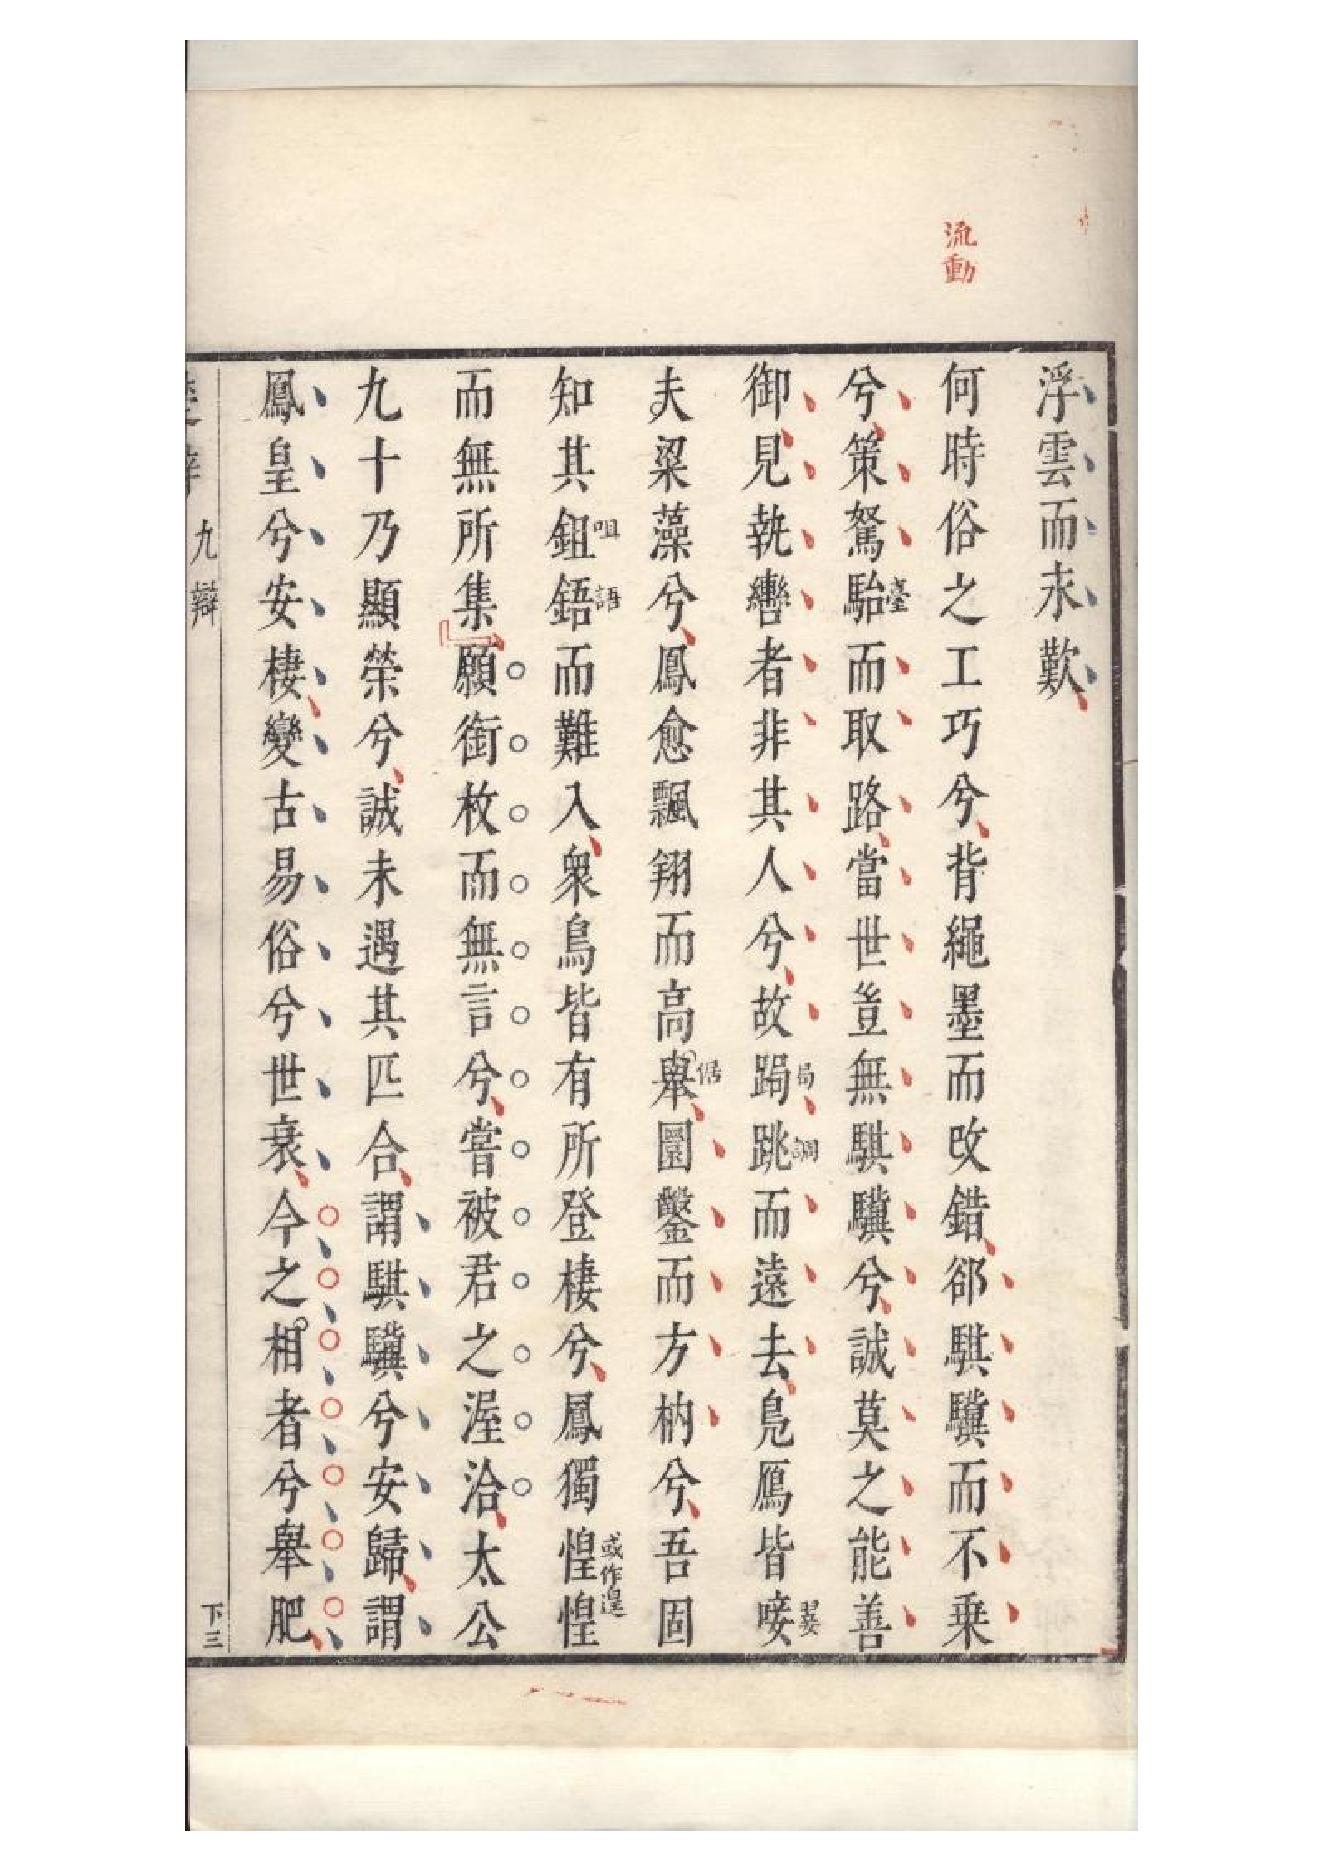 流動
浮雲而永歎
何時俗之工巧兮背繩墨而改錯郤騏驥而不乗
兮策駑駘臺而取路當世豈無騏驥兮誠莫之能善
御見執轡者非其人兮故跼局跳調而遠去鳬鴈皆唼翣
夫粱藻兮鳳愈飄翔而高舉倨圜鑿而方枘兮吾固
知其鉏咀鋙語而難入衆鳥皆有所登棲兮鳳獨惶惶或作遑
而無所集願銜枚而無言兮嘗被君之渥洽太公
九十乃顯榮兮誠未遇其匹合謂騏驥兮安歸謂
鳳皇兮安棲變古易俗兮世衰今之相者兮舉肥
九辯
下三